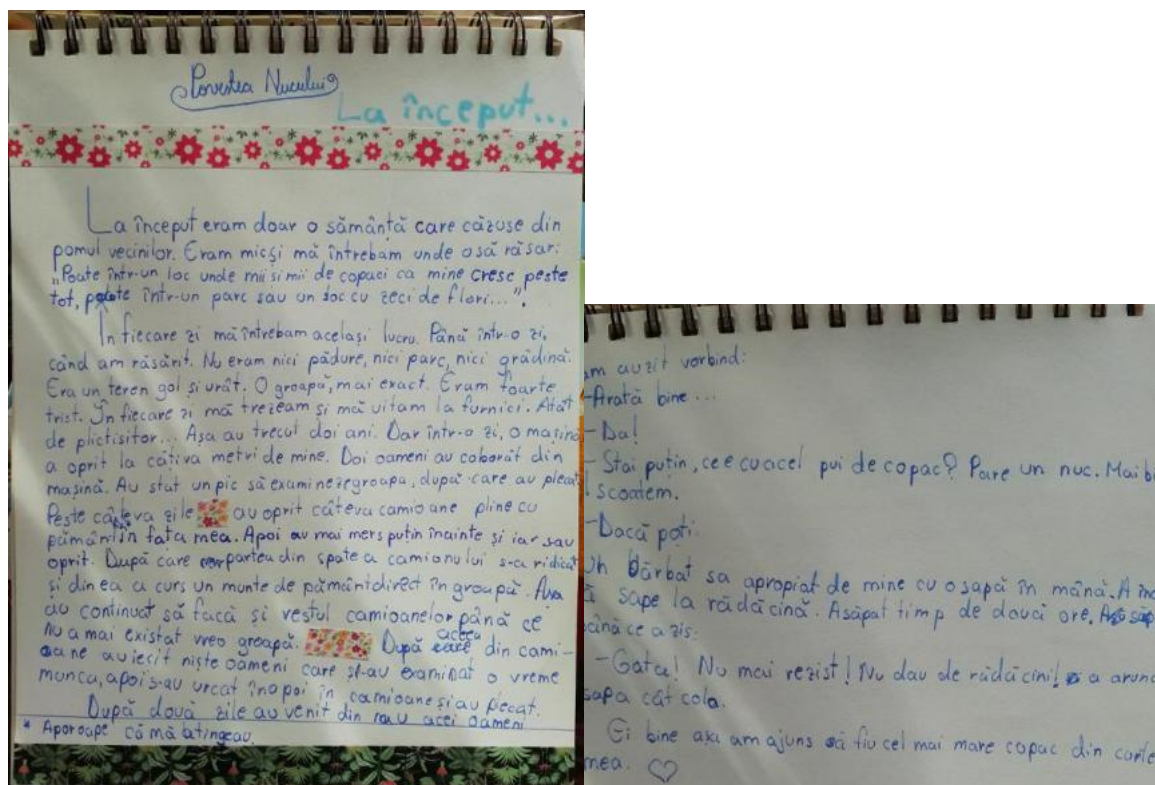 Povestea Nucului
La început...
La început eram doar o sămânță care căzuse din
pomul vecinilor. Eram mic și mă întrebam unde o să răsar:
„Poate într-un loc unde mii si mii de copaci ca mine cresc peste
tot, poate într-un parc sau un loc cu zeci de flori...".
In fiecare zi mă întrebam același lucru. Până într-o zi,
când am răsărit. Nu eram nici pădure, nici parc, nici grădină.
Era un teren gol și urât. O groapă, mai exact. Eram foarte
trist. În fiecare zi mă trezeam și mă uitam la furnici. Atât
de plictisitor... Așa au trecut doi ani. Dar într-o zi, o mașină
a oprit la câtiva metri de mine. Doi oameni au coborât din
mașină. Au stat un pic să examineze groapa, după care au plecat
Peste câteva zile au oprit câteva camioane pline cu
pământ în fața mea. Apoi au mai mers puțin înainte și iar sau
oprit. După care partea din spate a camionului s-a ridicat
și din ea a curs un munte de pământ direct în groapă*. Așa
au continuat să facă și restul camioanelor până ce
nu a mai existat vreo groapă. După aceea din cami-
oane au iesit niște oameni care și-au examinat o vreme
munca, apoi s-au urcat înapoi în camioane și au plecat.
După două zile au venit din nou acei oameni
* Aproape că mă atingeau.
am auzit vorbind:
-Arată bine...
-Da!
-Stai puțin, ce e cu acel pui de copac? Pare un nuc. Mai bi
scoatem.
-Dacă poți.
Un bărbat sa apropiat de mine cu o sapă în mână. A înc
ă sape la rădăcină. A săpat timp de două ore. A săp
până ce a zis:
-Gata! Nu mai rezist! Nu dau de rădăcini! a arunc
sapa cât colo.
Ei bine așa am ajuns să fiu cel mai mare copac din curte
mea. ♡